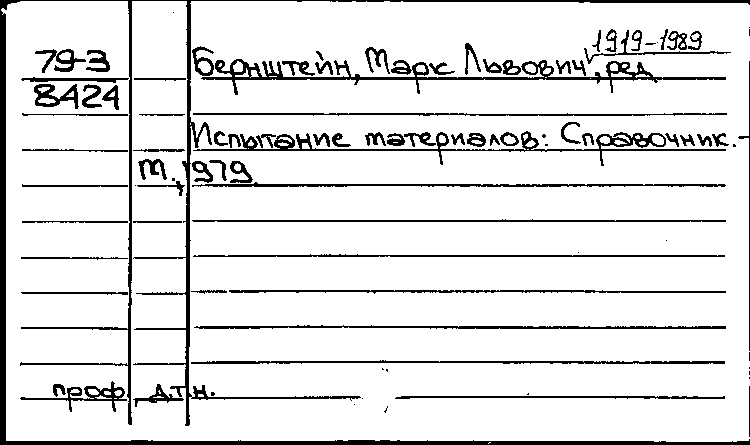 1919-1989
79-3 Бернштейн, Марк Львович, ред
8424
Испытание материалов: Справочник.-
М., 1979.
проф., д.т.н.